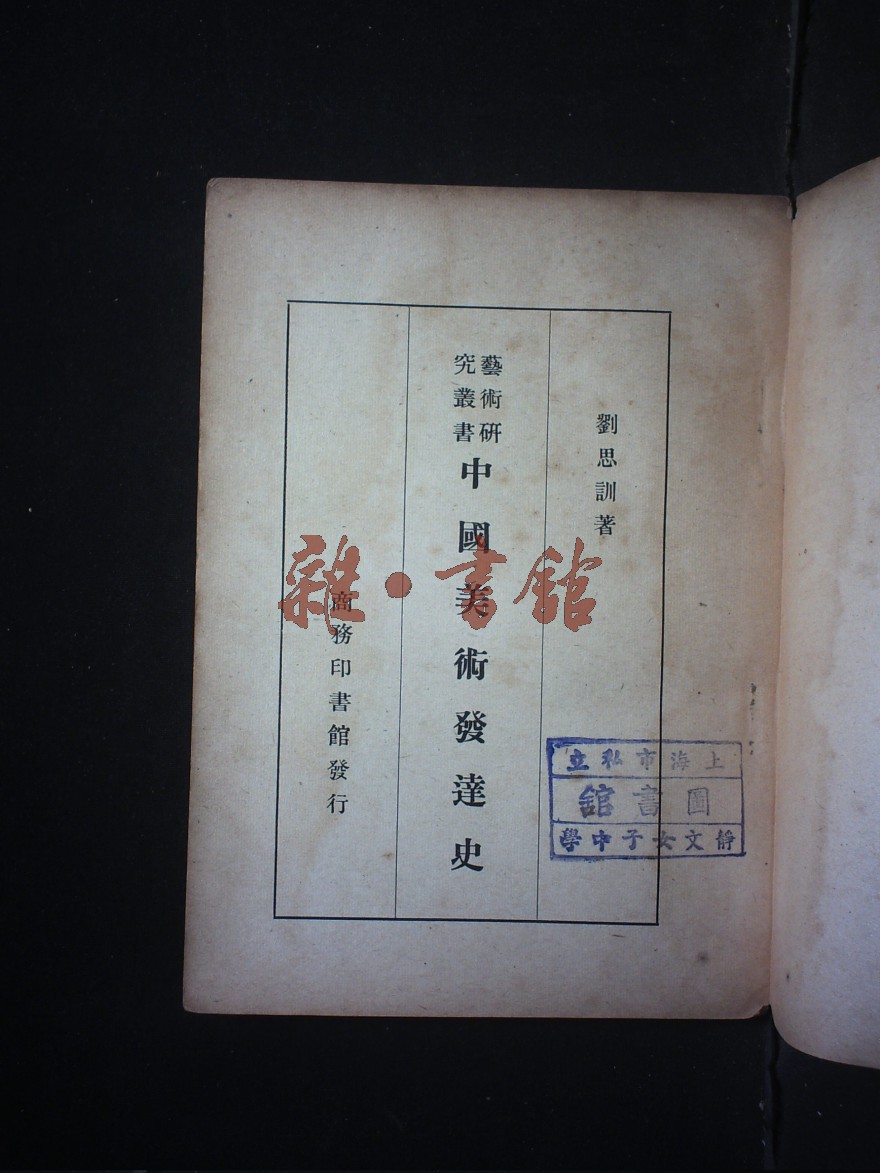 劉思訓著
藝術研
究叢書
中國美術發達史
商務印書館發行
雜·書館
上海市私立
圖書館
靜文女子中學